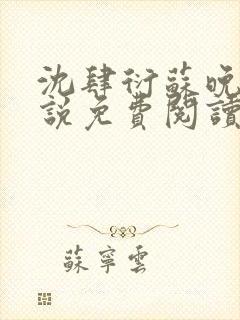 沈肆衍蘇晚
說免費閱讀
蘇寧雲